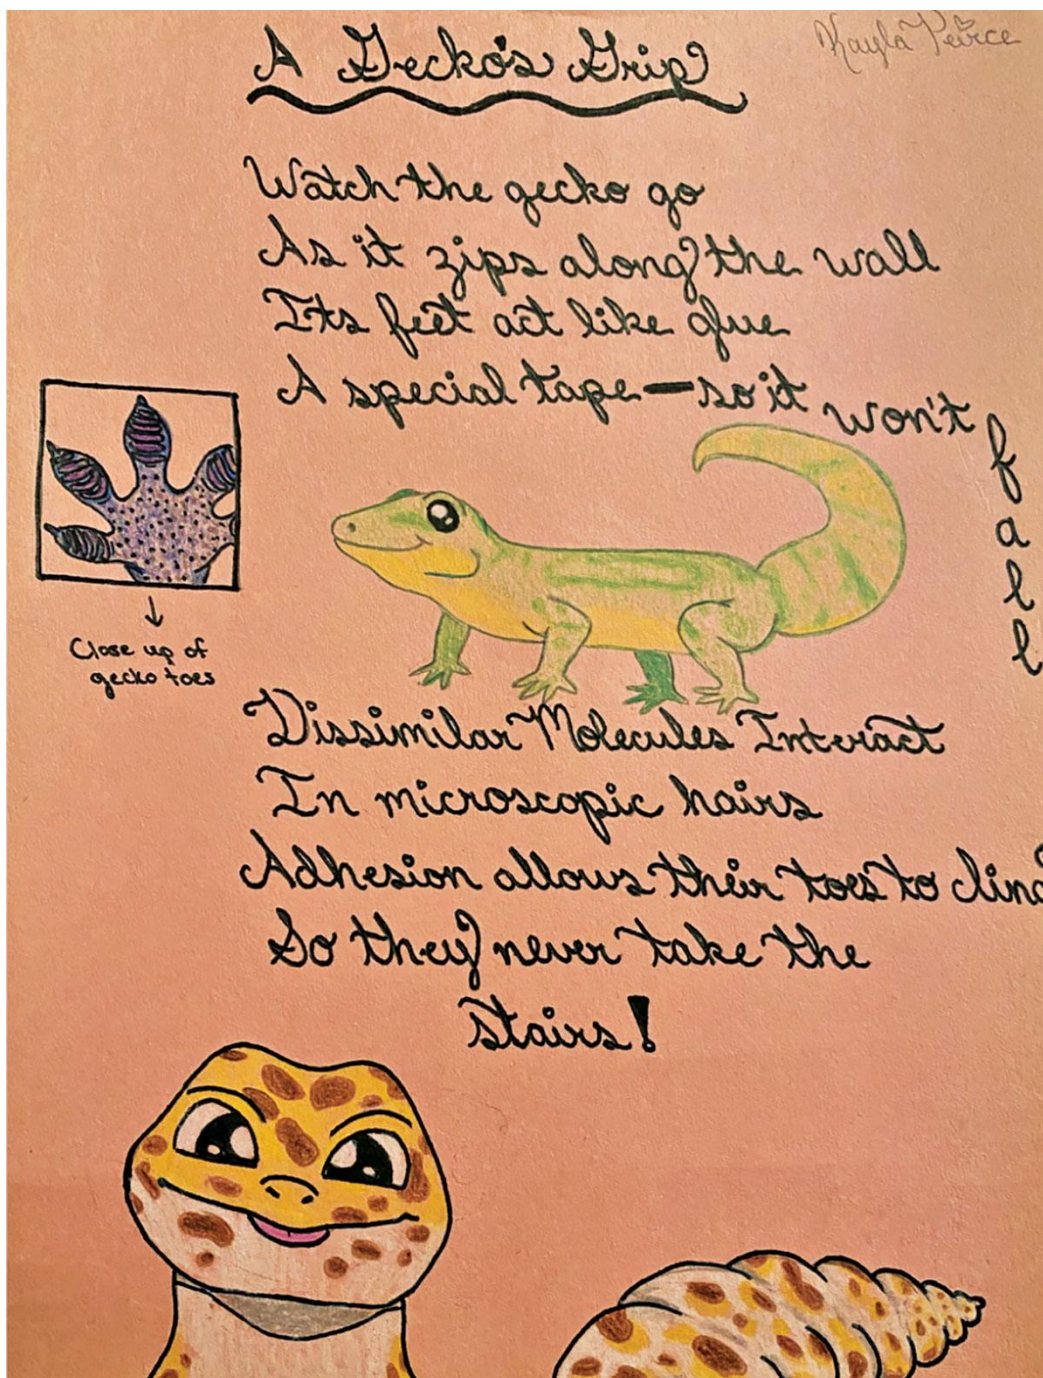 A Gecko's Grip
Kayla Peirce
Watch the gecko go
As it zips along the wall
Its feet act like glue
A special tape—so it won't fall
Close up of
gecko toes
Dissimilar Molecules Interact
In microscopic hairs
Adhesion allows their toes to cling
So they never take the
stairs!